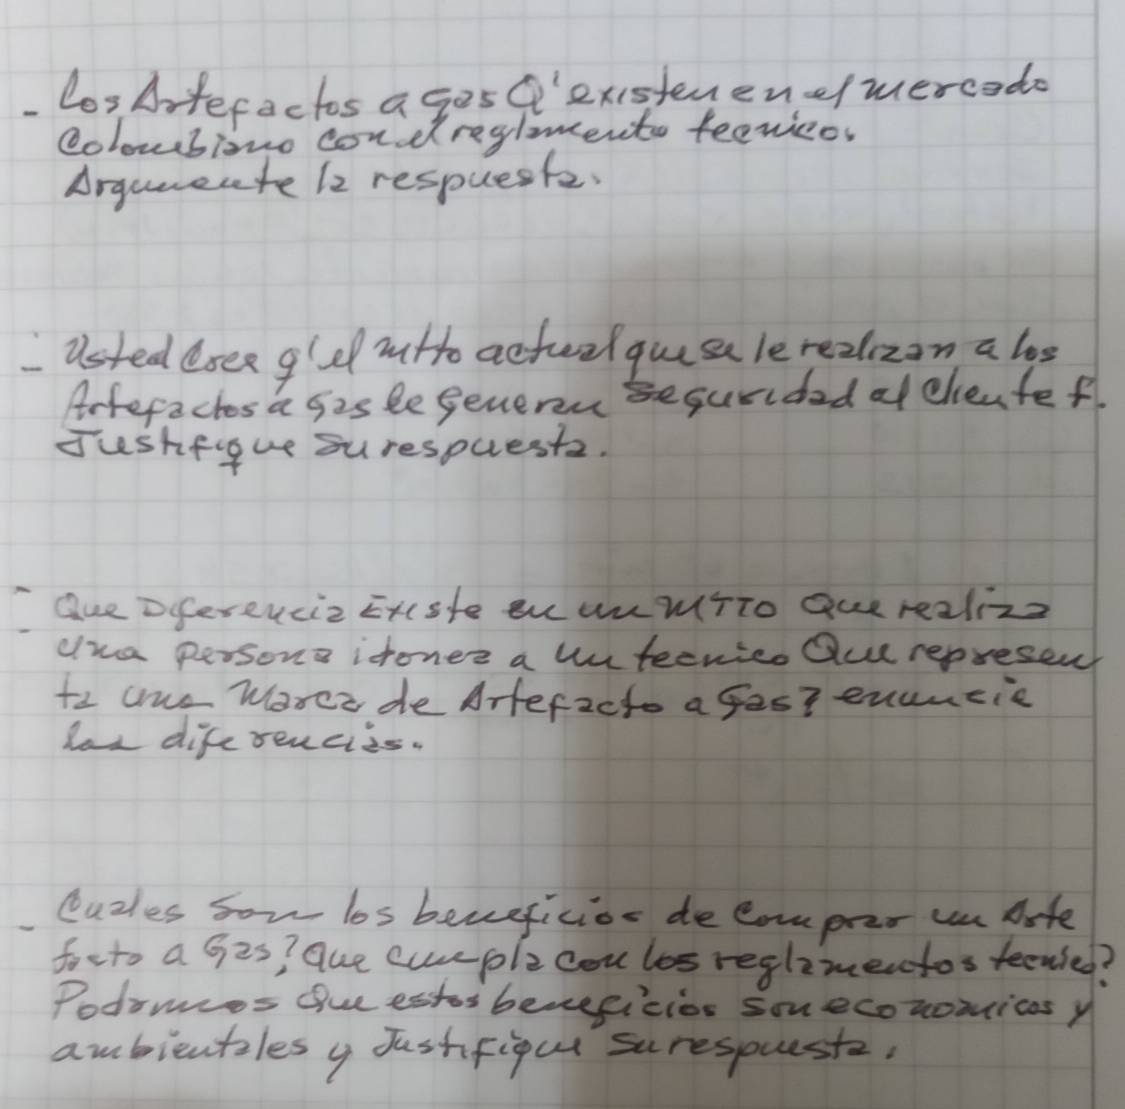 - Los Artefactos a gas Q' existen en el mercado
Colombiano con el reglamento tecnico.
Argumente la respuesta.
- Usted Cree q' el mtto actual que se le realizan a los
Artefactos a gas le generan seguridad al cliente f.
Justifique su respuesta.
- Que Diferencia Existe en un MTTO Que realiza
una persona itonea a un tecnico Que represen
ta una Marca de Artefacto a Gas? enuncie
las diferencias.
- Cuales son los beneficios de comprar un Arte
facto a Gas? Que cumpla con los reglamentos tecnico?
Podrmos Que estos beneficios son economicos y
ambientales y Justifique su respuesta.